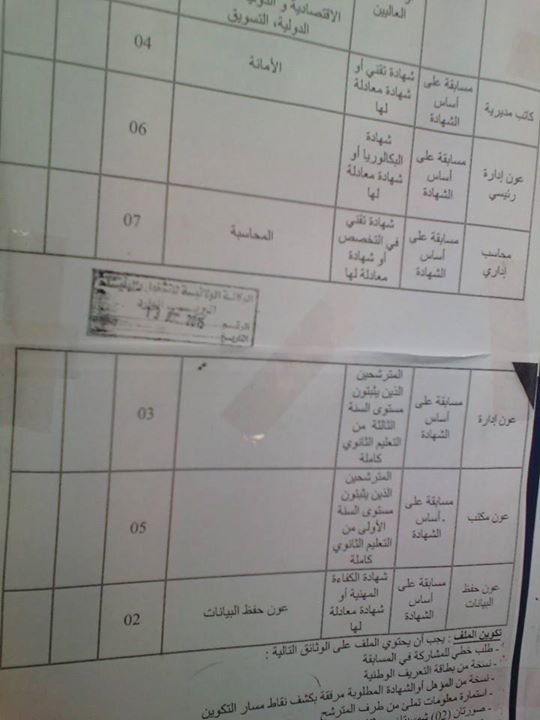 العاليين
الاقتصادية و الدولية
الدولية، التسويق
كاتب مديرية
مسابقة على
أساس
الشهادة
شهادة تقني أو
شهادة معادلة
لها
الأمانة
04
عون إدارة
رئيسي
مسابقة على
أساس
الشهادة
شهادة
البكالوريا أو
شهادة معادلة
لها
06
محاسب
إداري
مسابقة على
أساس
الشهادة
شهادة تقني
في التخصص
أو شهادة
معادلة لها
المحاسبة
07
الوكالة الولائية للتشغيل
الرقم
التاريخ
2015
عون إدارة
مسابقة على
أساس
الشهادة
المترشحين
الذين يثبتون
مستوى السنة
الثالثة من
التعليم الثانوي
كاملة
03
عون مكتب
مسابقة على
أساس
الشهادة
المترشحين
الذين يثبتون
مستوى السنة
الأولى من
التعليم الثانوي
كاملة
05
عون حفظ
البيانات
مسابقة على
أساس
الشهادة
شهادة الكفاءة
المهنية أو
شهادة معادلة
لها
عون حفظ البيانات
02
تكوين الملف : يجب أن يحتوي الملف على الوثائق التالية :
- طلب خطي للمشاركة في المسابقة
- نسخة من بطاقة التعريف الوطنية
- نسخة من المؤهل أو الشهادة المطلوبة مرفقة بكشف نقاط مسار التكوين
- استمارة معلومات تملئ من طرف المترشح
- صورتان (02)